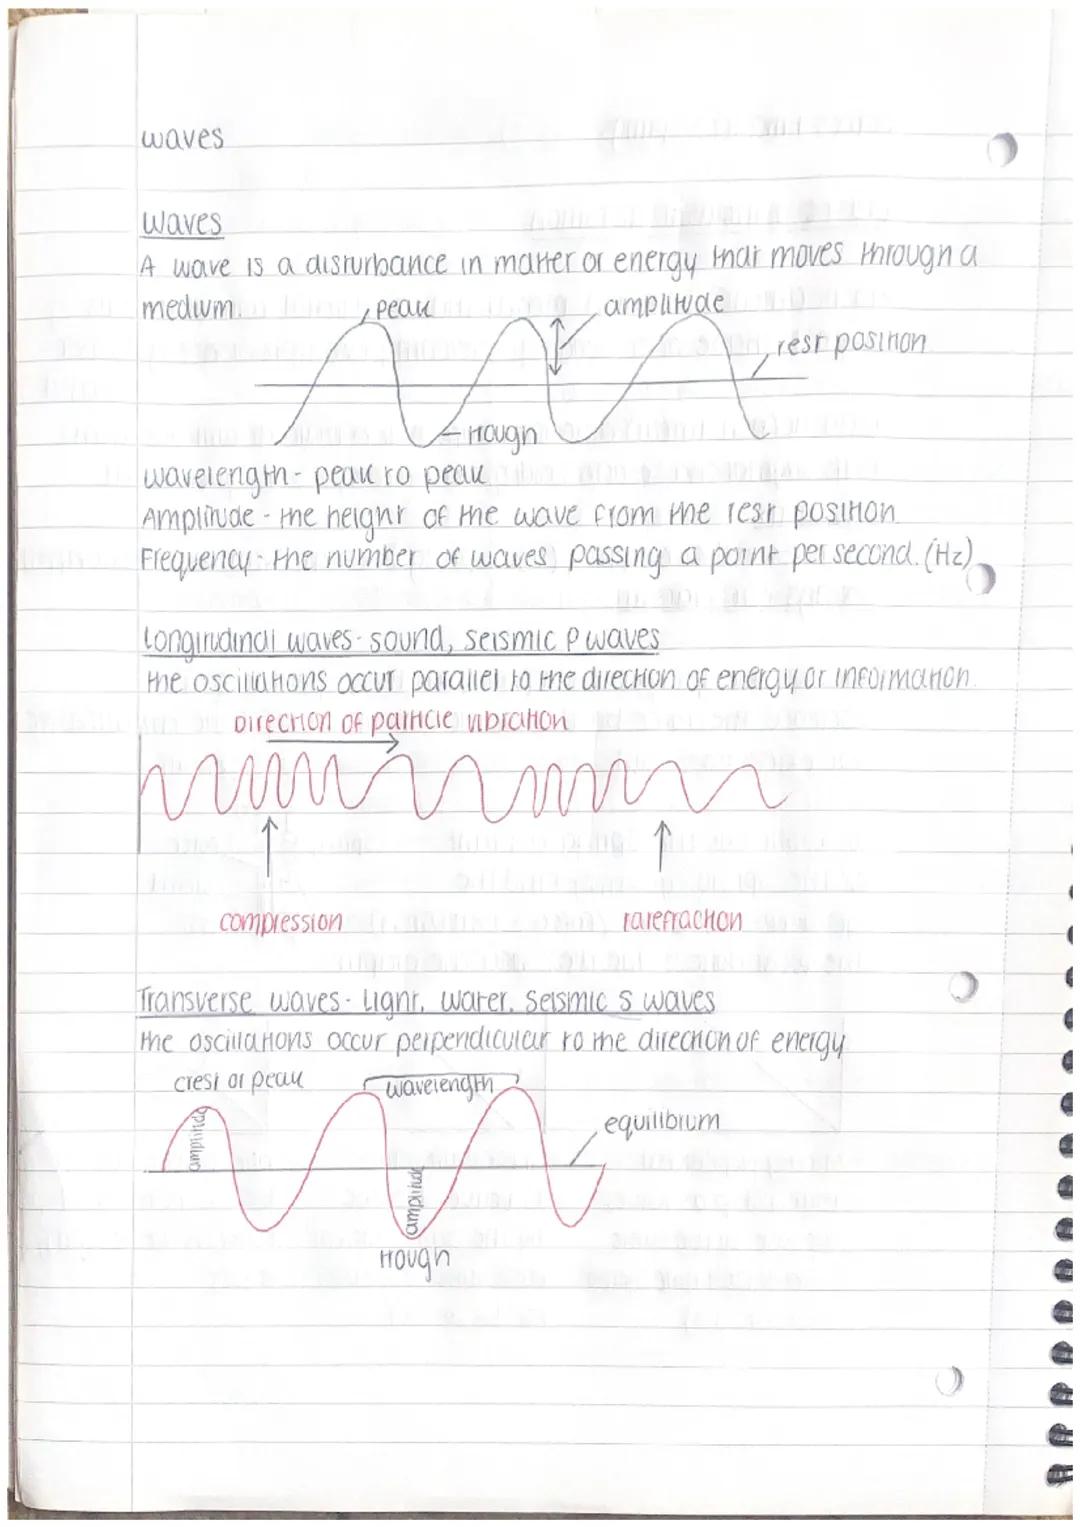 waves
waves
A wave is a disturbance in matter or energy that moves through a
medium.
peak
amplitude
rest position
trough
wavelength - peak to peak
Amplitude - the height of the wave from the rest position.
Frequency - the number of waves passing a point per second. (Hz)
Longitudinal waves - sound, seismic P waves
the oscillations occur parallel to the direction of energy or information.
Direction of particle vibration
compression
rarefraction
Transverse waves - Light, water, seismic S waves
the oscillations occur perpendicular to the direction of energy
crest or peak
wavelength
amplitude
equilibrium
amplitude
trough